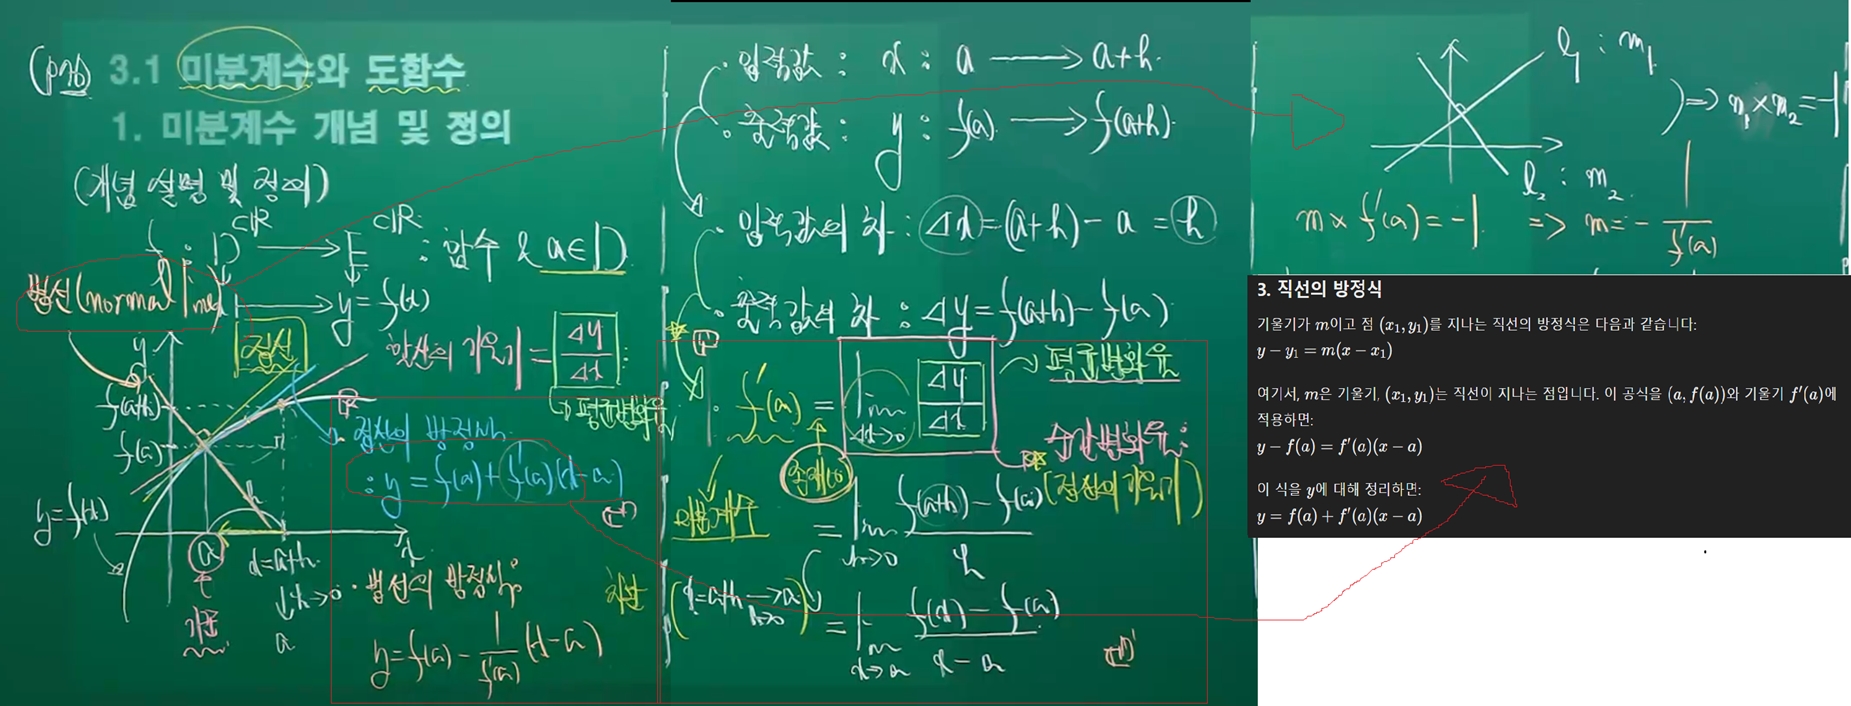 (p76) 3.1 미분계수와 도함수
1. 미분계수 개념 및 정의
(개념 설명 및 정의)
f : D ⊂ℝ → E ⊂ℝ : 함수 & a∈D
x ↦ y = f(x)
법선(normal line)
접선
할선의 기울기 = Δy/Δx
↳ 평균변화율
y
f(a+h)
f(a)
y=f(x)
h
a
x=a+h
x
↓h→0
a
기준
접선의 방정식
: y = f(a) + f'(a)(x-a)
법선의 방정식
y = f(a) - 1/f'(a) (x-a)
· 입력값 : x : a → a+h
· 출력값 : y : f(a) → f(a+h)
· 입력값의 차 : Δx = (a+h) - a = h
· 출력값의 차 : Δy = f(a+h) - f(a)
· f'(a) = lim Δx→0 Δy/Δx
평균변화율
순간변화율
(접선의 기울기)
존재(O)
미분계수
= lim h→0 (f(a+h) - f(a))/h
(x=a+h → a h→0)
= lim x→a (f(x) - f(a))/(x - a)
l₁ : m₁
l₂ : m₂
⇒ m₁ × m₂ = -1
m × f'(a) = -1 ⇒ m = - 1/f'(a)
3. 직선의 방정식
기울기가 m이고 점 (x₁, y₁)를 지나는 직선의 방정식은 다음과 같습니다:
y − y₁ = m(x − x₁)
여기서, m은 기울기, (x₁, y₁)는 직선이 지나는 점입니다. 이 공식을 (a, f(a))와 기울기 f′(a)에
적용하면:
y − f(a) = f′(a)(x − a)
이 식을 y에 대해 정리하면:
y = f(a) + f′(a)(x − a)